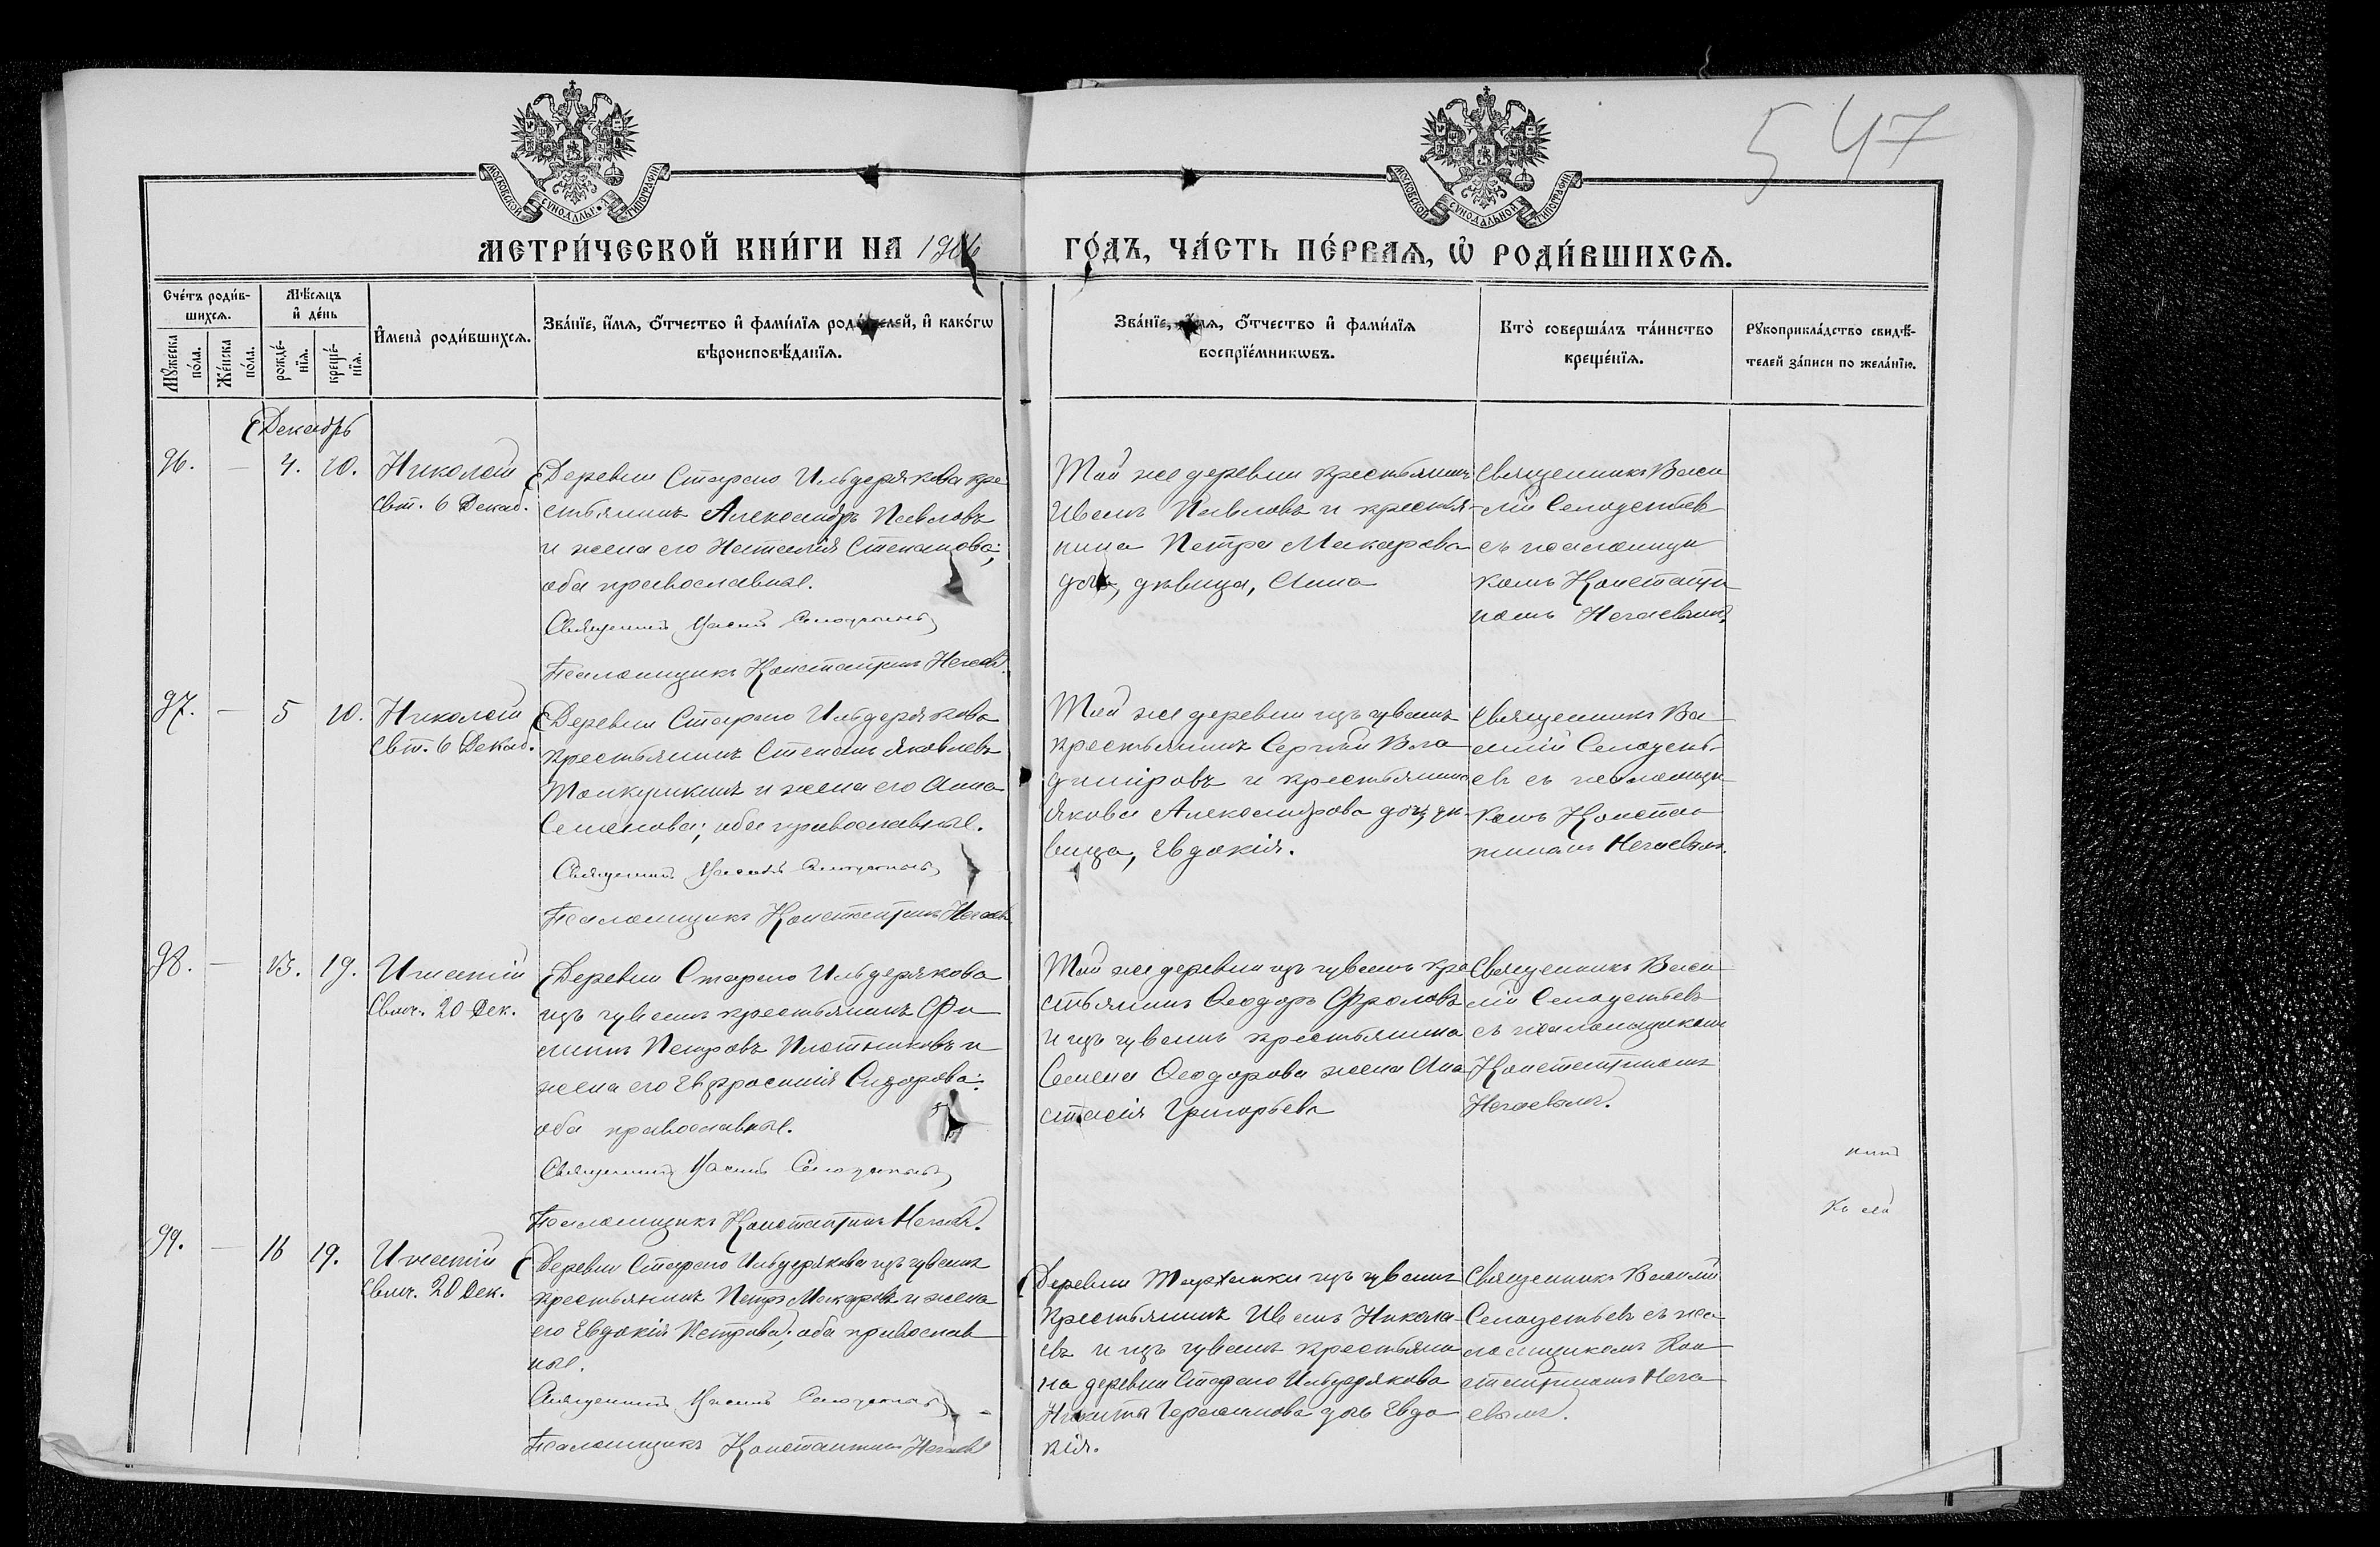 547
МОСКОВСКОЙ СУНОДАЛЬНОЙ ТИПОГРАФІИ
МОСКОВСКОЙ СУНОДАЛЬНОЙ ТИПОГРАФІИ
МЕТРИ́ЧЕСКОЙ КНИ́ГИ НА 1906
ГО́ДЪ, ЧА́СТЬ ПЕ́РВАЯ, Ѽ РОДИ́ВШИХСЯ.
Сче́тъ роди́в-
шихся.
Мѣ́сяцъ
и҆ де́нь
Мꙋ́жеска
по́ла.
Же́нска
по́ла.
рожде́-
нїя.
креще́-
нїя.
И҆мена̀ роди́вшихся.
Зва́нїе, и҆́мя, ѻ҆́тчество и҆ фами́лїя роди́телей, и҆ како́гѡ
вѣроисповѣ́данїя.
Зва́нїе, и҆́мя, ѻ҆́тчество и҆ фами́лїя
воспрїе́мникѡвъ.
Кто̀ соверша́лъ та́инство
креще́нїя.
Рꙋкоприкла́дство свидѣ́-
телей за́писи по жела́нїю.
Декабрь
96. — 4. 10. Николай
Свт. 6 Декаб.
Деревни Стараго Ильдерякова кре
стьянинъ Александръ Павловъ
и жена его Наталія Степанова;
оба православные.
Священникъ Василій
Псаломщикъ Константинъ Нечаевъ.
Той же деревни крестьянинъ
Иванъ Павловъ и крестья-
нина Петра Макарова
дочь, дѣвица, Анна
Священникъ Васи
лій
съ псаломщи
комъ Константи
номъ Нечаевымъ
97. — 5 10. Николай
Свт. 6 Декаб.
Деревни Стараго Ильдерякова
крестьянинъ Степанъ Яковлевъ
и жена его Анна
Семенова; оба православные.
Священникъ Василій
Псаломщикъ Константинъ Нечаевъ
Той же деревни изъ чувашъ
крестьянинъ Сергѣй Вла
диміровъ и крестьянина
Якова Александрова дочь, дѣ-
вица, Евдокія.
Священникъ Ва
силій
евъ съ псаломщи
комъ Констан
тиномъ Нечаевым.
98. — 15. 19. Игнатій
Свмч. 20 Дек.
Деревни Стараго Ильдерякова
изъ чувашъ крестьянинъ Фи
липпъ Петровъ Плотниковъ и
жена его Евфросинія Сидорова:
оба православные.
Священникъ Василій
Псаломщикъ Константинъ Нечаевъ.
Той же деревни изъ чувашъ кре
стьянинъ Ѳеодоръ Фроловъ
и изъ чувашъ крестьянина
Семена Ѳеодорова жена Ана
стасія Григорьева
Священникъ Васи
лій
съ псаломщикомъ
Константиномъ
Нечаевымъ.
99. — 16 19. Игнатій
Свмч. 20 Дек.
Деревни Стараго Ильдерякова изъ чувашъ
крестьянинъ Петръ Макаровъ и жена
его Евдокія Петрова; оба православ
ные.
Священникъ Василій
Псаломщикъ Константинъ Нечаевъ
Деревни изъ чувашъ
крестьянинъ Иванъ Никола-
евъ и изъ чувашъ крестьяни
на деревни Стараго Ильдерякова
Никиты Герасимова дочь Евдо
кія.
Священникъ Василій
съ пса
ломщикомъ Кон
стантиномъ Неча
евымъ.